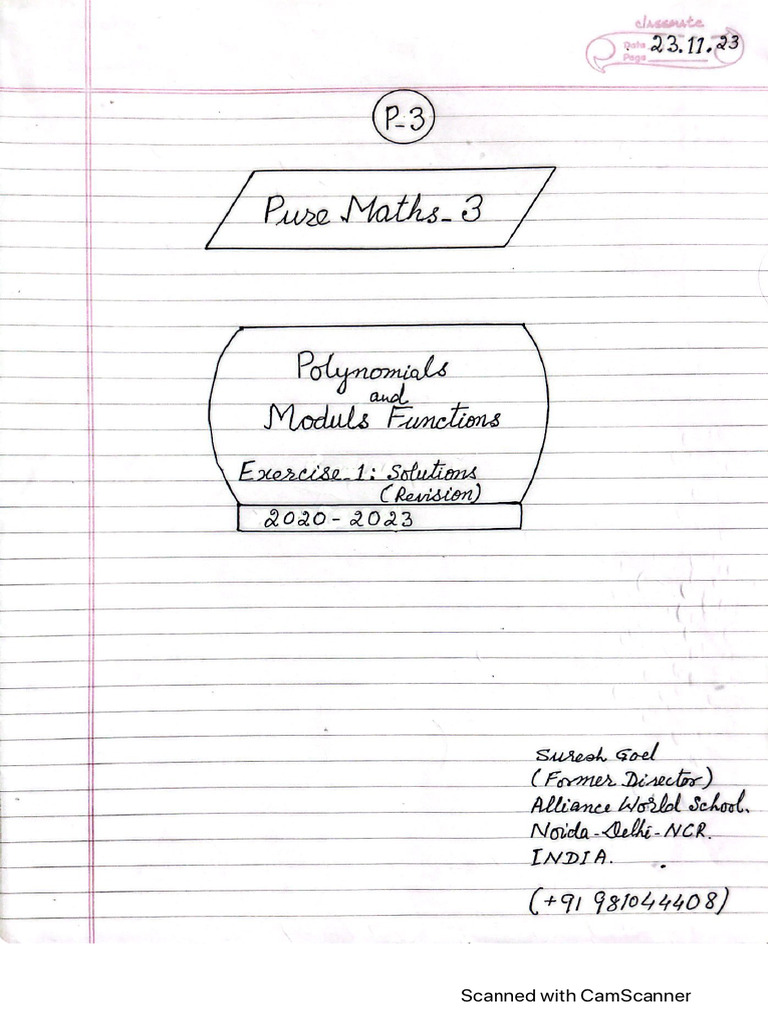 classmate
Date 23.11.23
Page
P-3
Pure Maths-3
Polynomials
and
Moduls Functions
Exercise-1: Solutions
(Revision)
2020-2023
Suresh Goel
(Former Director)
Alliance World School.
Noida-Delhi-NCR.
INDIA.
(+91 981044408)
Scanned with CamScanner